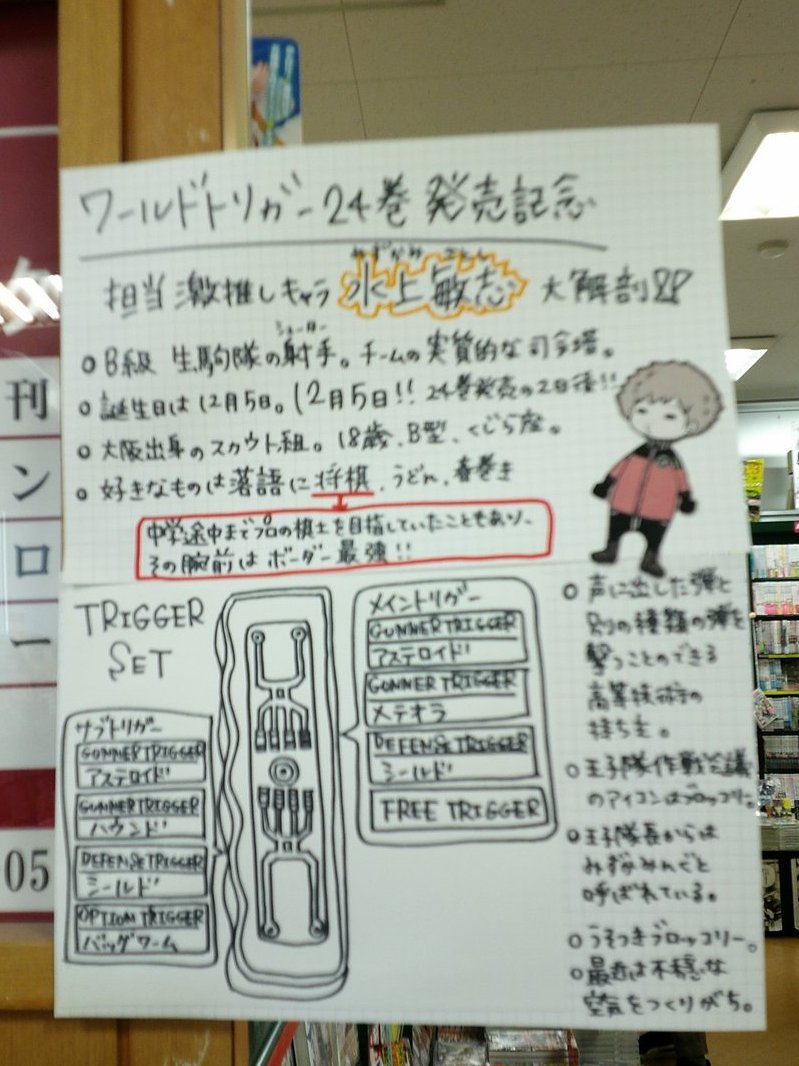 ワールドトリガー24巻 発売記念
みずかみ さとし
担当 激推しキャラ 水上敏志 大解剖!!
シューター
○B級 生駒隊の射手。チームの実質的な司令塔。
○誕生日は12月5日。12月5日!! 24巻発売の2日後!!
○大阪出身のスカウト組。18歳、B型、くじら座。
○好きなものは落語に将棋、うどん、春巻き
中学途中までプロの棋士を目指していたこともあり、
その腕前はボーダー最強!!
TRIGGER
SET
メイントリガー
GUNNER TRIGGER
アステロイド
GUNNER TRIGGER
メテオラ
DEFENSE TRIGGER
シールド
FREE TRIGGER
サブトリガー
GUNNER TRIGGER
アステロイド
GUNNER TRIGGER
ハウンド
DEFENSE TRIGGER
シールド
OPTION TRIGGER
バッグワーム
○声に出した弾と
別の種類の弾を
撃つことのできる
高等技術の
持ち主。
○王子隊作戦会議
のアイコンはブロッコリー。
○王子隊長からは
みずかみんぐと
呼ばれている。
○うそつきブロッコリー。
○最近は不穏な
空気をつくりがち。
刊
ン
ロ
ー
05